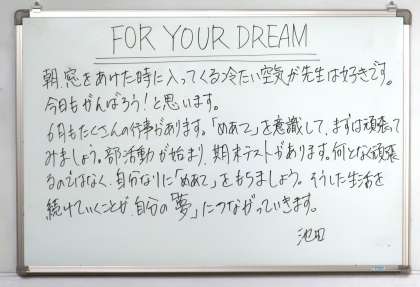 FOR YOUR DREAM
朝、窓をあけた時に入ってくる冷たい空気が先生は好きです。
今日もがんばろう！と思います。
6月もたくさんの行事があります。「めあて」を意識して、まずは頑張って
みましょう。部活動が始まり、期末テストがあります。何となく頑張
るのではなく、自分なりに「めあて」をもちましょう。そうした生活を
続けていくことが、自分の「夢」につながっていきます。
池田